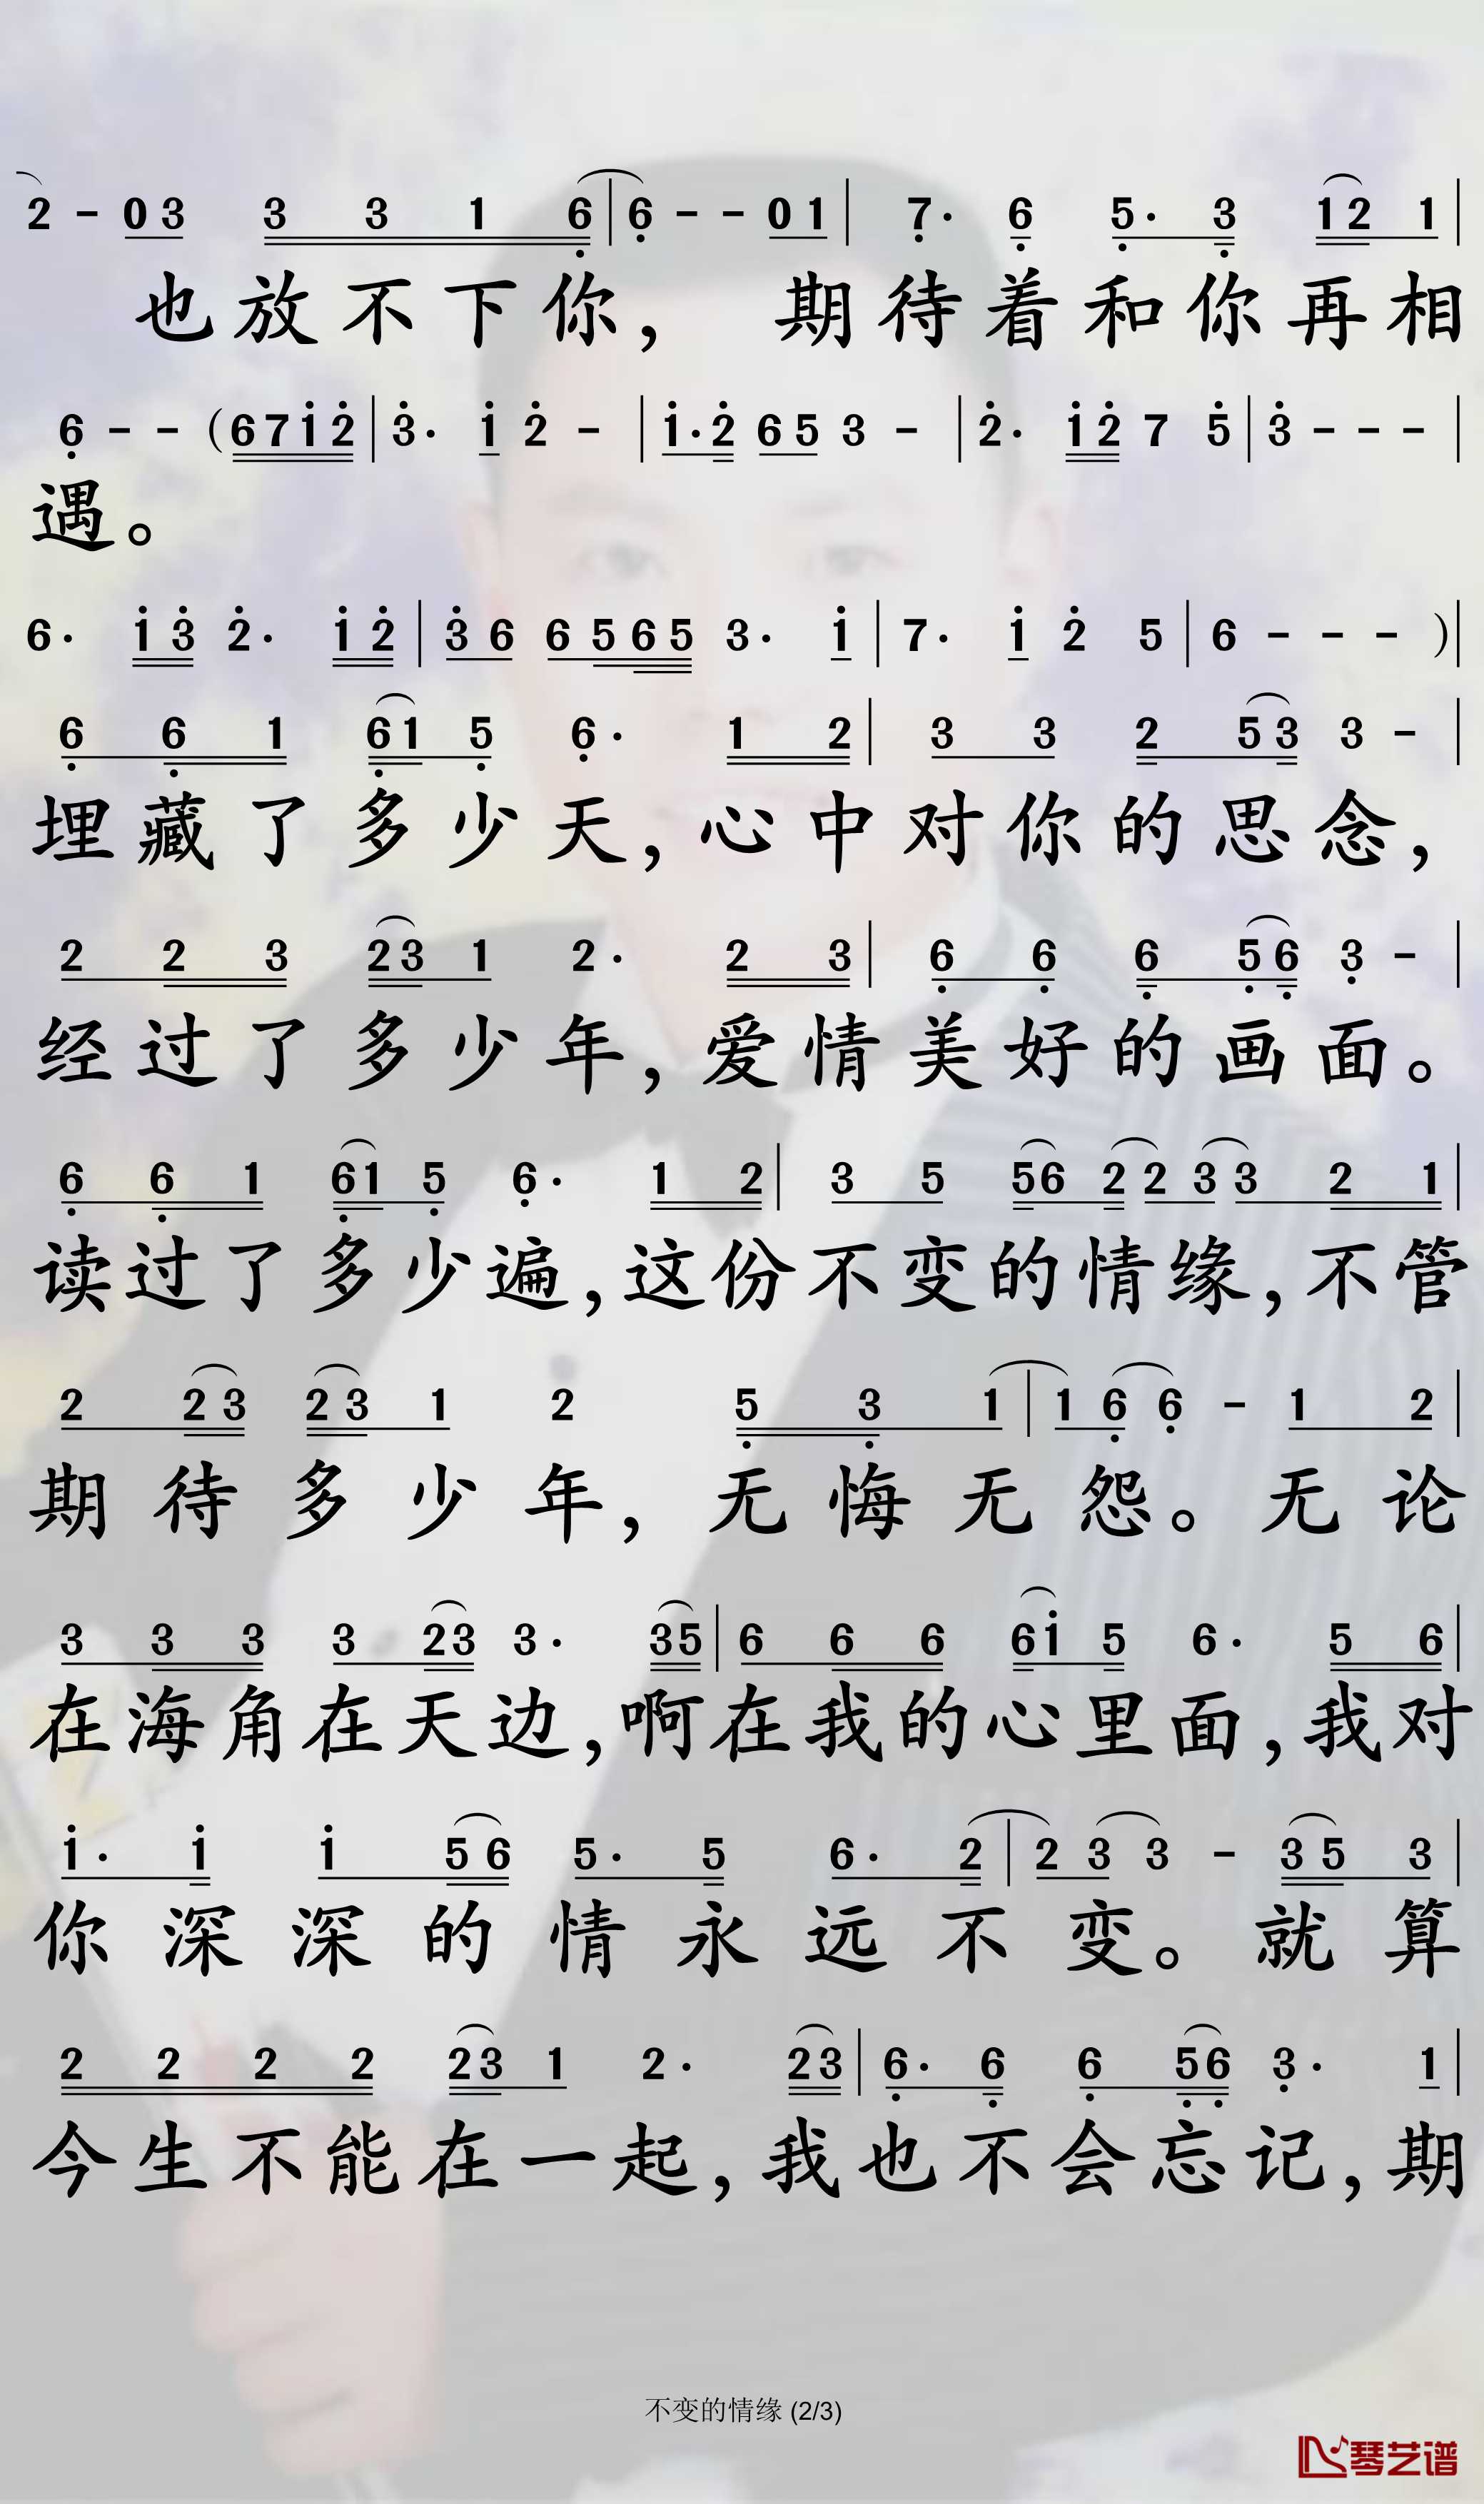 2 - 0 3 3 3 1 6 | 6 - - 0 1 | 7 · 6 5 · 3 1 2 1 |
也放不下你， 期待着和你再相
6 - - ( 6 7 1 2 | 3 · 1 2 - | 1 · 2 6 5 3 - | 2 · 1 2 7 5 | 3 - - - |
遇。
6 · 1 3 2 · 1 2 | 3 6 6 5 6 5 3 · 1 | 7 · 1 2 5 | 6 - - - ) |
6 6 1 6 1 5 6 · 1 2 | 3 3 2 5 3 3 - |
埋藏了多少天，心中对你的思念，
2 2 3 2 3 1 2 · 2 3 | 6 6 6 5 6 3 - |
经过了多少年，爱情美好的画面。
6 6 1 6 1 5 6 · 1 2 | 3 5 5 6 2 2 3 3 2 1 |
读过了多少遍，这份不变的情缘，不管
2 2 3 2 3 1 2 5 3 1 | 1 6 6 - 1 2 |
期待多少年，无悔无怨。无论
3 3 3 3 2 3 3 · 3 5 | 6 6 6 6 1 5 6 · 5 6 |
在海角在天边，啊在我的心里面，我对
1 · 1 1 5 6 5 · 5 6 · 2 | 2 3 3 - 3 5 3 |
你深深的情永远不变。就算
2 2 2 2 2 3 1 2 · 2 3 | 6 · 6 6 5 6 3 · 1 |
今生不能在一起，我也不会忘记，期
不变的情缘 (2/3)
琴艺谱